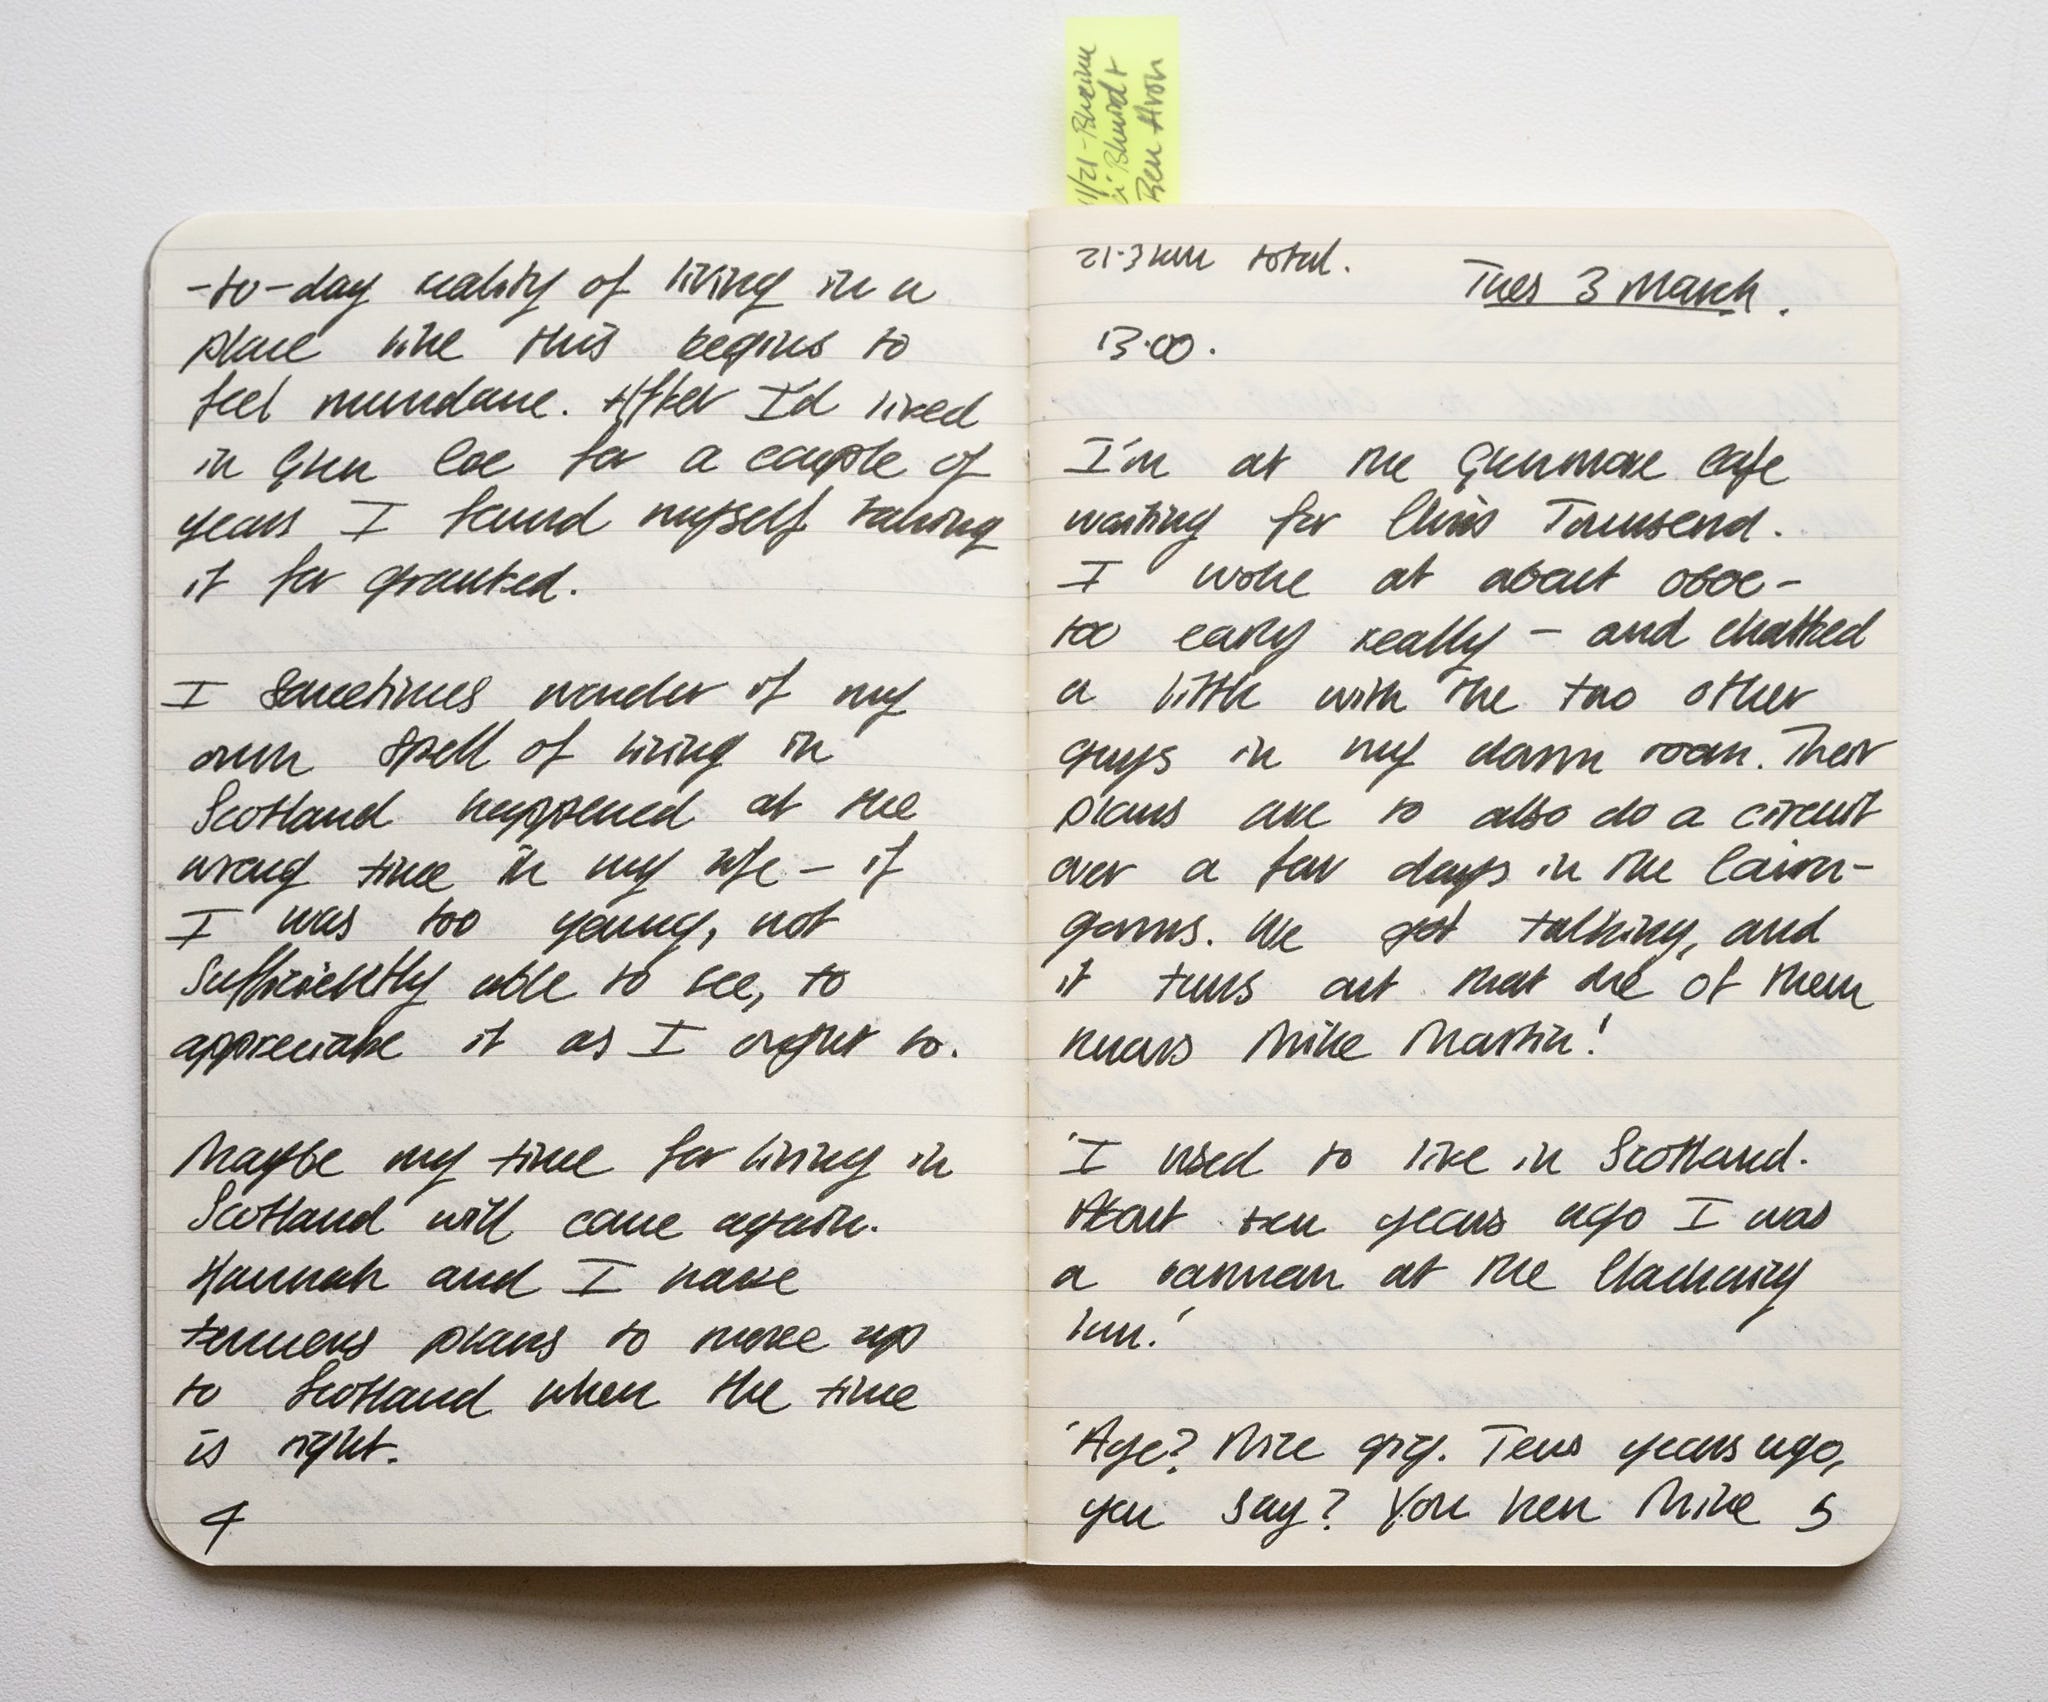 11/21 - Bheinn
a' Bhuird +
Ben Avon
-to-day reality of living in a
place like this begins to
feel mundane. After I'd lived
in Glen Coe for a couple of
years I found myself taking
it for granted.
I sometimes wonder if my
own spell of living in
Scotland happened at the
wrong time in my life - if
I was too young, not
sufficiently able to see, to
appreciate it as I ought to.
Maybe my time for living in
Scotland will come again.
Hannah and I have
tenuous plans to move up
to Scotland when the time
is right.
4
21.3km total.
Tues 3 March.
13.00.
I'm at the Glenmore Cafe
waiting for Chris Townsend.
I woke at about 0600 -
too early really - and chatted
a little with the two other
guys in my dorm room. Their
plans are to also do a circuit
over a few days in the Cairn-
gorms. We get talking, and
it turns out that one of them
knows Mike Martin!
'I used to live in Scotland.
About ten years ago I was
a barman at the Clachaig
Inn.'
'Aye? Nice gig. Tens years ago,
you say? You ken Mike
5